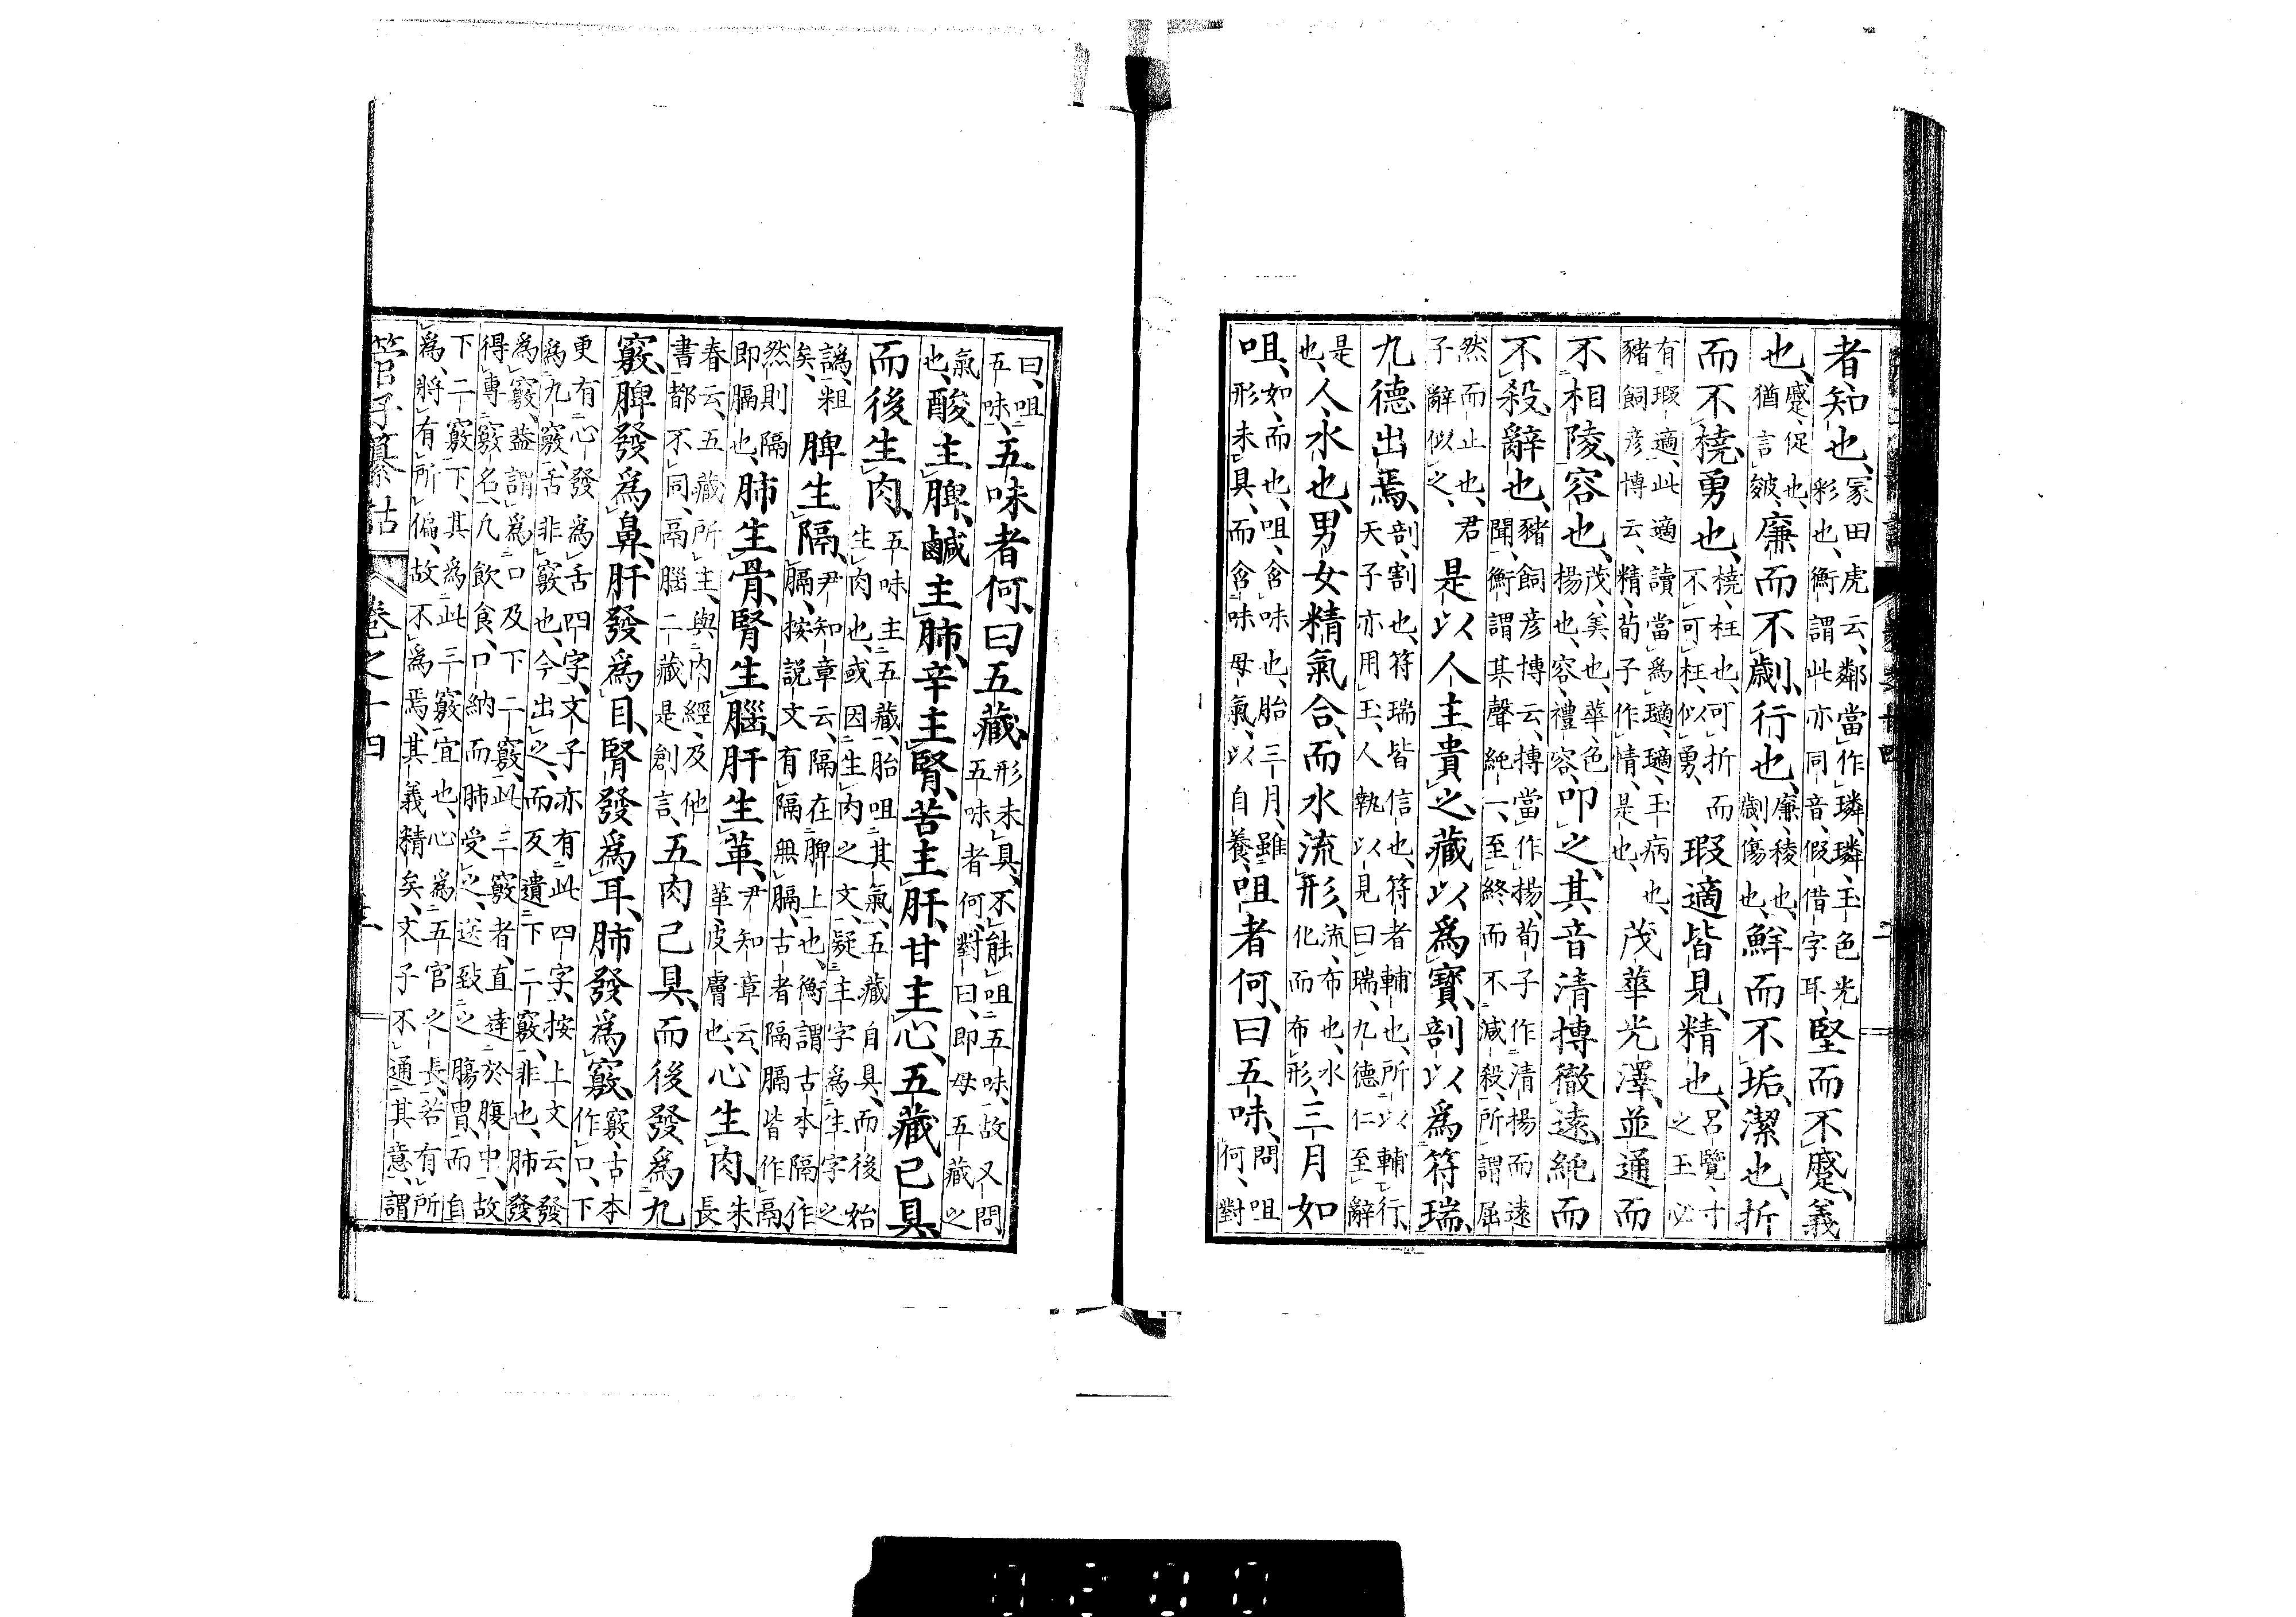 者知也、冢田虎云、鄰當作璘、璘、玉色光彩也、衡謂此亦同音假借字耳、堅而不蹙、義
也、蹙、促也、猶言皴、廉而不劌、行也、廉、稜也、劌、傷也、鮮而不垢、潔也、折
而不橈、勇也、橈、枉也、可折而不可枉、似勇、瑕適皆見、精也、呂覽、寸之玉必
有瑕適、此適讀當爲瓋、瓋、玉病也、豬飼彥博云、精、荀子作情、是也、茂華光澤、並通而
不相陵、容也、茂、美也、華色揚也、容、禮容、叩之、其音清摶徹遠、純而
不殺、辭也、豬飼彥博云、摶當作揚、荀子作清揚而遠聞、衡謂其聲純一、至終而不減殺、所謂屈
然而止也、君子辭似之、是以人主貴之、藏以爲寶、剖以爲符瑞、
九德出焉、剖、割也、符瑞皆信也、符者輔也、所以輔行、天子亦用玉、人執以見曰瑞、九德仁至辭
是也、人、水也、男女精氣合、而水流形、流、布也、水化而布形、三月如
咀、如、而也、咀、含味也、胎三月、雖形未具、而含味母氣、以自養、咀者何、曰五味、問咀何、對
曰、咀五味、五味者何、曰五藏、形未具、不能咀五味、故又問五味者何、對曰、即母五藏之
氣也、酸主脾、鹹主肺、辛主腎、苦主肝、甘主心、五藏已具、
而後生肉、五味主五藏、胎咀其氣、五藏自具、而後始生肉也、或因生肉之文、疑主字爲生字之
譌、粗矣、脾生隔、尹知章云、隔在脾上也、衡謂古本隔作膈、按說文有隔無膈、古者隔膈皆作鬲、
然則隔即膈也、肺生骨、腎生腦、肝生革、尹知章云、革、皮膚也、心生肉、朱長
春云、五藏所主、與內經及他書都不同、鬲腦二藏是創言、五肉已具、而後發爲九
竅、脾發爲鼻、肝發爲目、腎發爲耳、肺發爲竅、竅古本作口、下
更有心發爲舌四字、文子亦有此四字、按上文云、發爲九竅、舌非竅也、今出之、而反遺下二竅、非也、肺發
爲竅、蓋謂爲口及下二竅、此三竅者、直達於腹中、故得專竅名、凡飲食、口納而肺受之、送致之腸胃、而自
下二竅下、其爲此三竅宜也、心爲五官之長、若有所爲、將有所偏、故不爲焉、其義精矣、文子不通其意、謂
管子纂詁 卷之十四